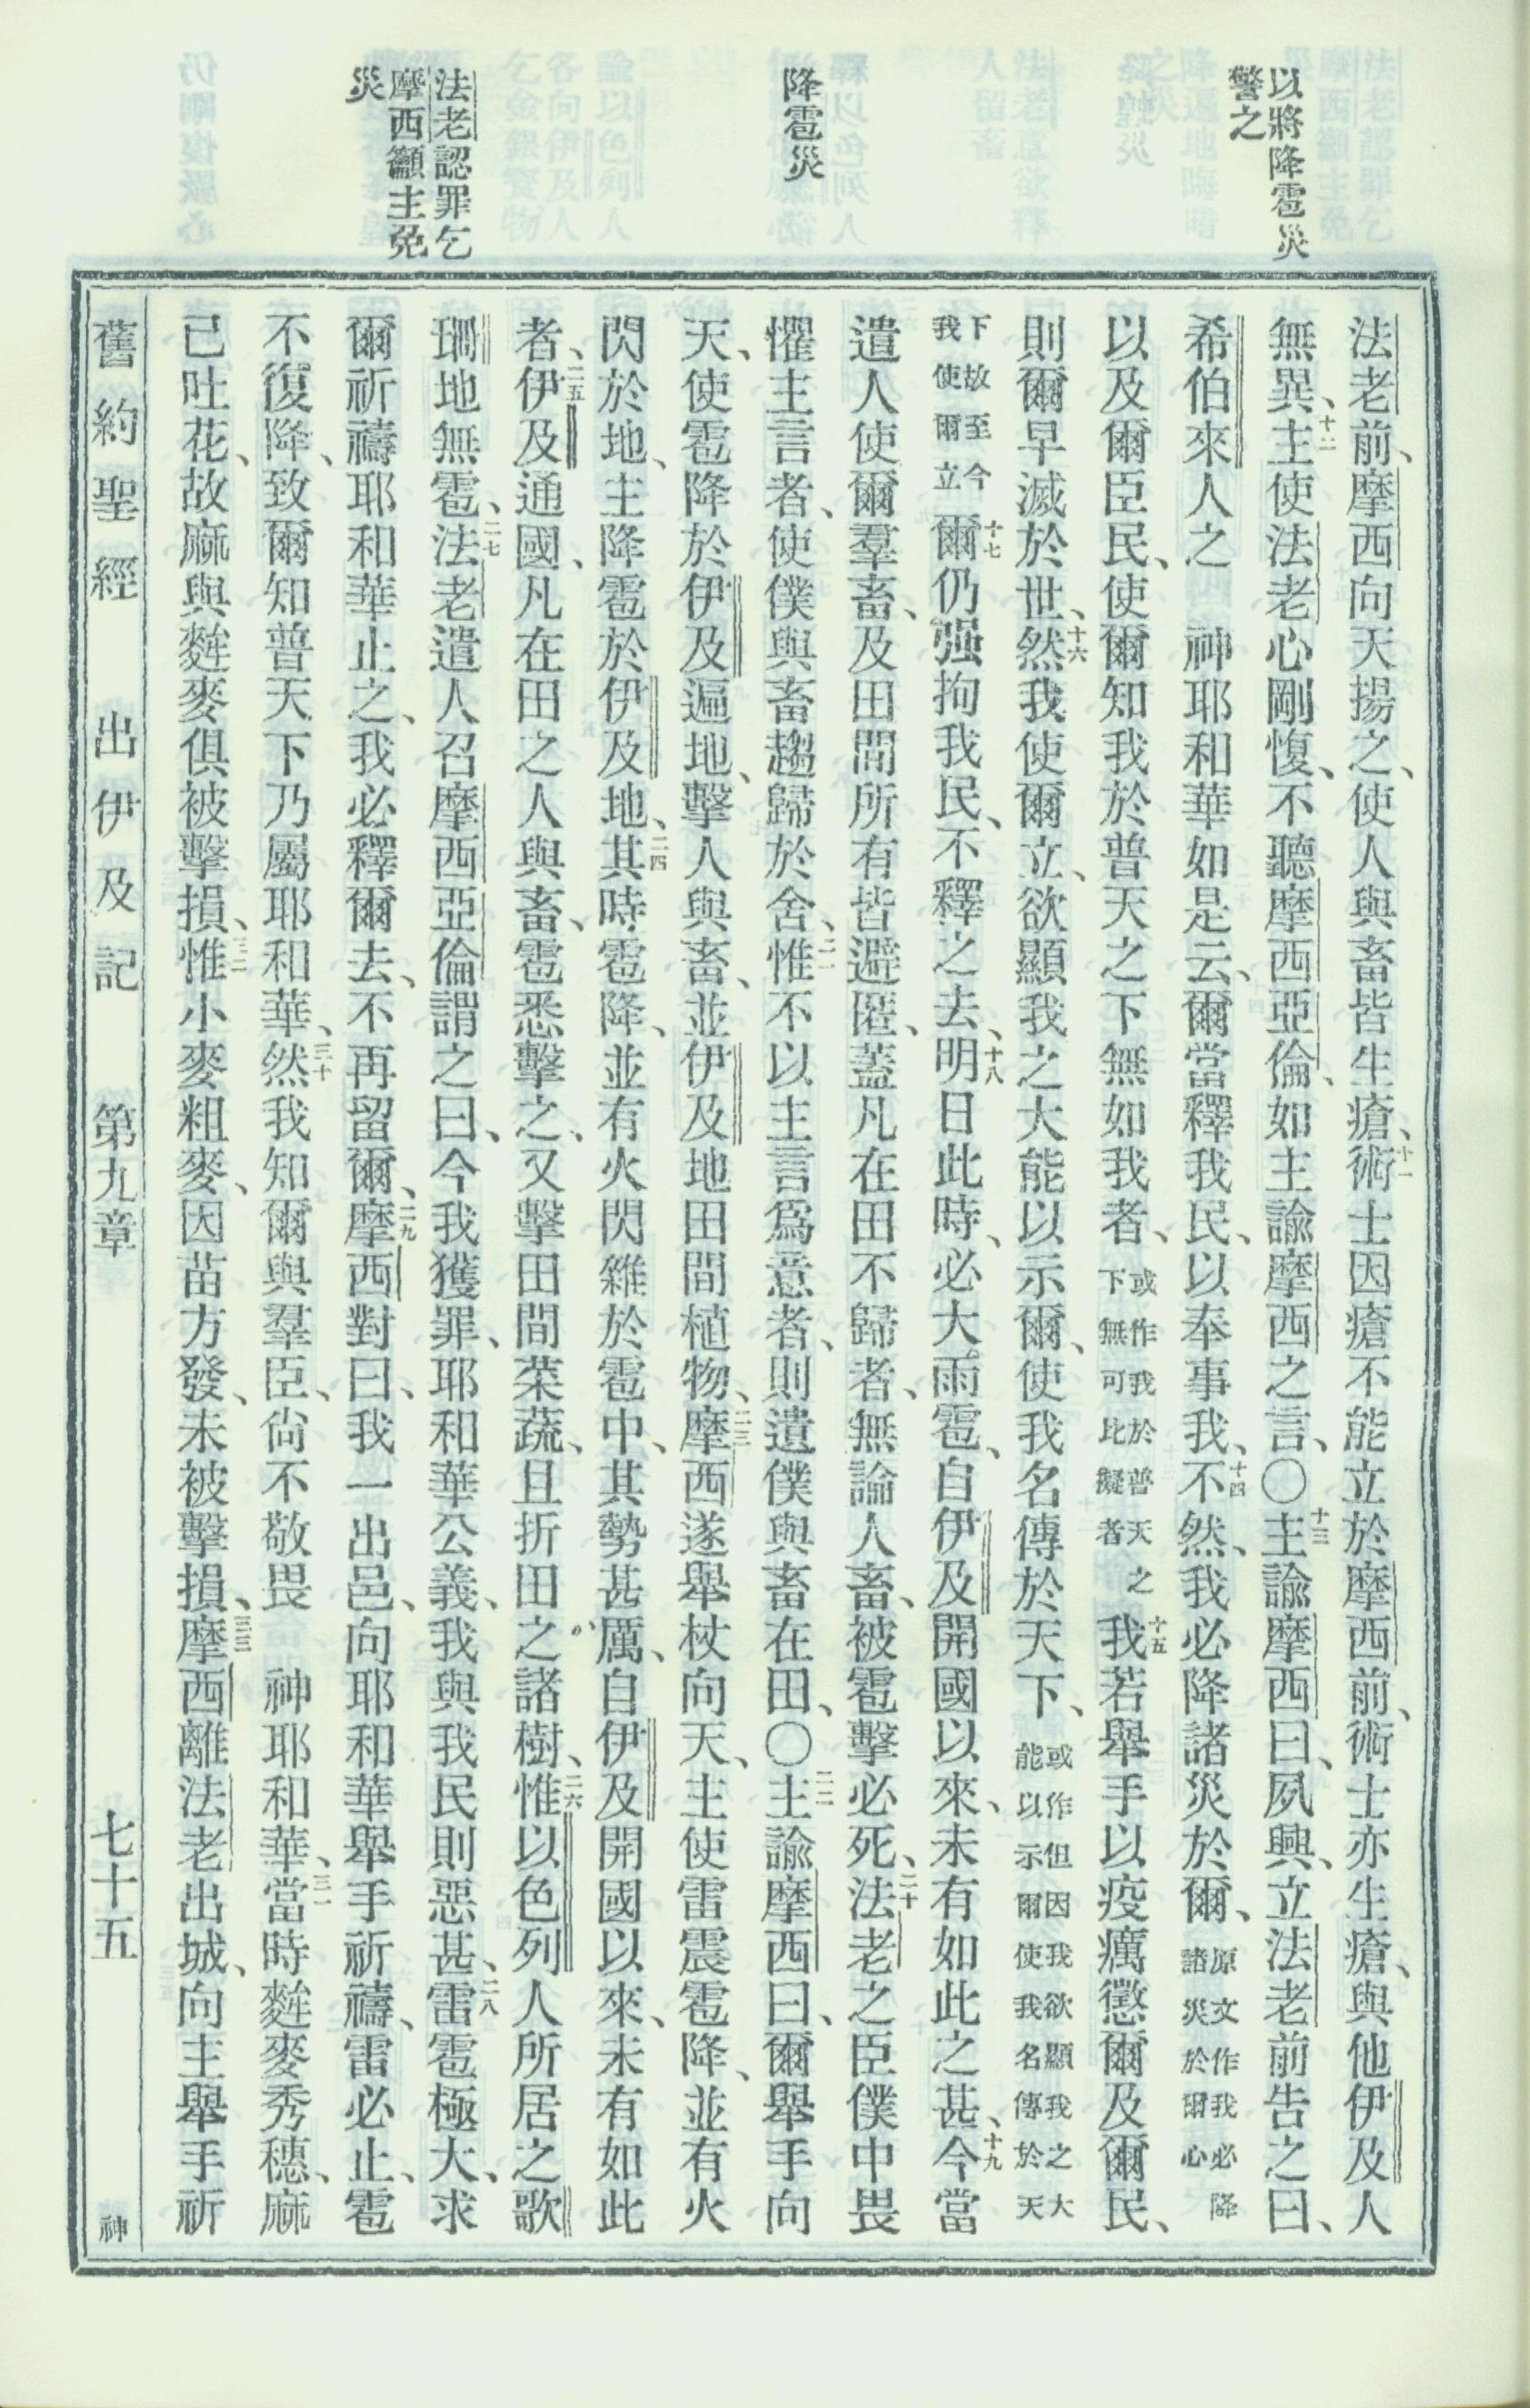 以將降雹災
警之
降雹災
法老認罪乞
摩西籲主免
災
法老前、摩西向天揚之、使人與畜皆生瘡、十一術士因瘡不能立於摩西前、術士亦生瘡、與他伊及人
無異、十二主使法老心剛愎、不聽摩西亞倫、如主諭摩西之言、〇十三主諭摩西曰、夙興、立法老前告之曰、
希伯來人之 神耶和華如是云、爾當釋我民、以奉事我、十四不然、我必降諸災於爾、原文作我必降諸災於爾心
以及爾臣民、使爾知我於普天之下無如我者、或作我於普天之下無可比擬者十五我若舉手以疫癘懲爾及爾民、
則爾早滅於世、十六然我使爾立、欲顯我之大能以示爾、使我名傳於天下、或作但因我欲顯我之大能以示爾使我名傳於天
下故至今我使爾立十七爾仍强拘我民、不釋之去、十八明日此時、必大雨雹、自伊及開國以來、未有如此之甚、十九今當
遣人使爾羣畜、及田間所有皆避匿、蓋凡在田不歸者、無論人畜、被雹擊必死、二十法老之臣僕中畏
懼主言者、使僕與畜趨歸於舍、二一惟不以主言爲意者、則遺僕與畜在田、〇二二主諭摩西曰、爾舉手向
天、使雹降於伊及遍地、擊人與畜、並伊及地田間植物、二三摩西遂舉杖向天、主使雷震雹降、並有火
閃於地、主降雹於伊及地、二四其時雹降、並有火閃雜於雹中、其勢甚厲、自伊及開國以來、未有如此
者、二五伊及通國、凡在田之人與畜、雹悉擊之、又擊田間菜蔬、且折田之諸樹、二六惟以色列人所居之歌
珊地無雹、二七法老遣人召摩西亞倫謂之曰、今我獲罪、耶和華公義、我與我民則惡甚、二八雷雹極大、求
爾祈禱耶和華止之、我必釋爾去、不再留爾、二九摩西對曰、我一出邑、向耶和華舉手祈禱、雷必止、雹
不復降、致爾知普天下乃屬耶和華、三十然我知爾與羣臣、尙不敬畏 神耶和華、三一當時麰麥秀穗、麻
已吐花、故麻與麰麥俱被擊損、三二惟小麥粗麥、因苗方發、未被擊損、三三摩西離法老出城、向主舉手祈
舊約聖經 出伊及記 第九章 七十五 神